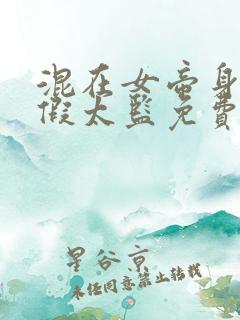 混在女帝身
假太监免费
星谷京
未经同意禁止转载